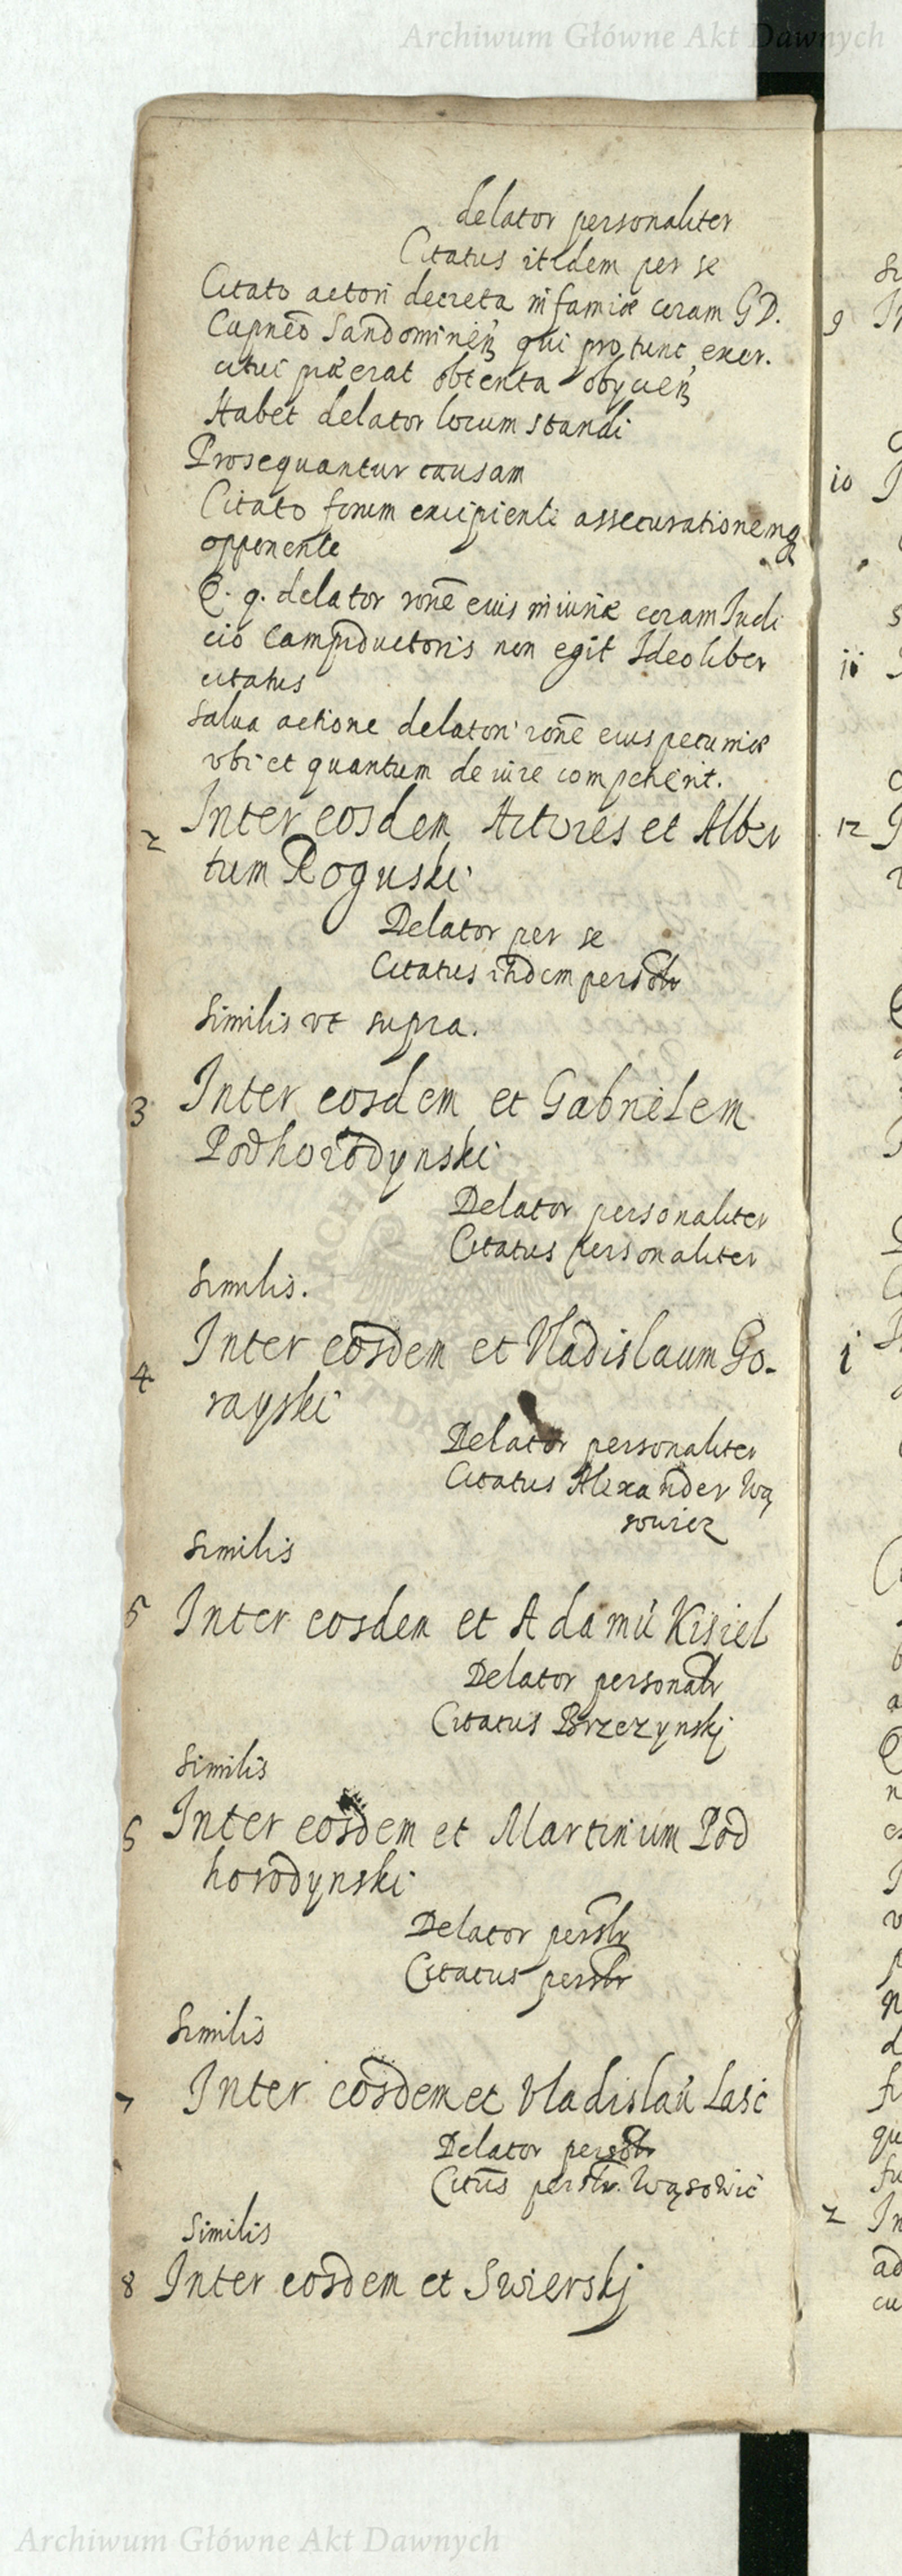 Archiwum Główne Akt Dawnych
delator personaliter
Citatus itidem per se
Citato actori decreta infamiæ coram GD.
Capneo Sandominien qui pro tunc exer.
citui præerat obtenta obijcien
Habet delator locum standi
Prosequantur causam
Citato forum excipienti assecurationemq
opponente
Q. g. delator ronē eius iniuriæ coram Iudi
cio Campiductoris non egit Ideo liber
citatus
Salua actione delatori ronē eius pecuniæ
vbi et quantum de iure competierit.
2 Inter eosdem Actores et Alber
tum Roguski
Delator per se
Citatus itidem persolr
Similis vt supra.
3 Inter eosdem et Gabrielem
Podhorodynski
Delator personaliter
Citatus personaliter
Similis.
4 Inter eosdem et Vladislaum Go-
rayski
Delator personaliter
Citatus Alexander Wą
sowicz
Similis
5 Inter eosdem et Adamū Kisiel
Delator personalr
Citatus Brzezynskj
Similis
6 Inter eosdem et Martinum Pod
horodynski
Delator perslr
Citatus perslr
Similis
7 Inter eosdem et Vladislaū Lasć
Delator persolr
Cittūs perslr. Wąsowić
Similis
8 Inter eosdem et Swierskj
9
10
11
12
1
2 In
ad
cu
Archiwum Główne Akt Dawnych